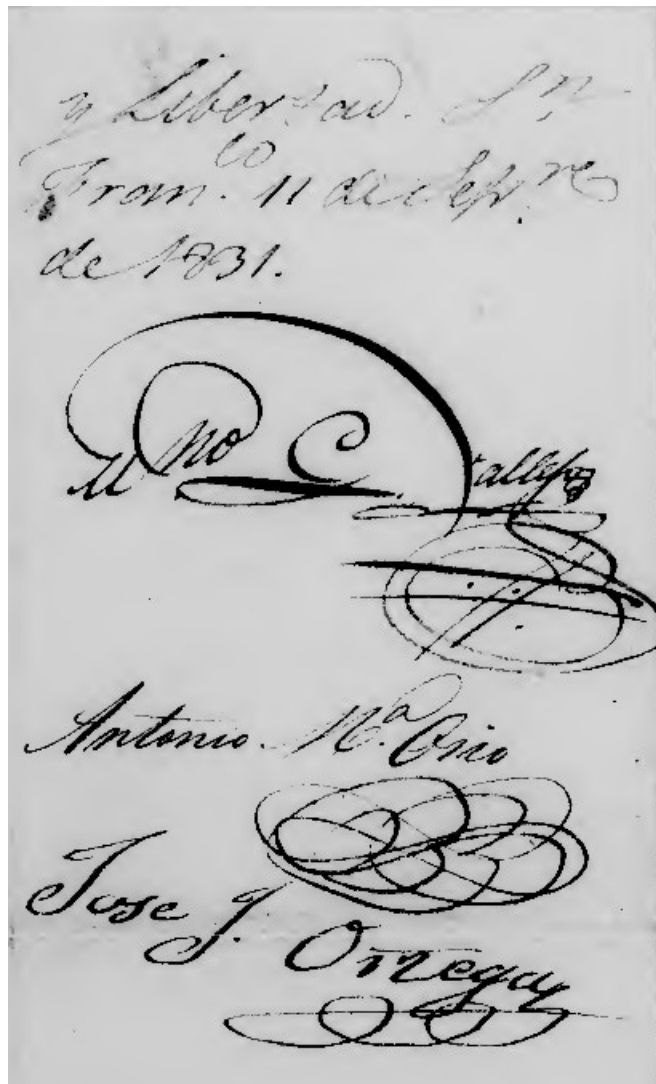 y Libertad. Sn
Fran.co 11 de Sep.re
de 1831.
M no G. Vallejo
Antonio Ma. Osio
Jose J. Ortega